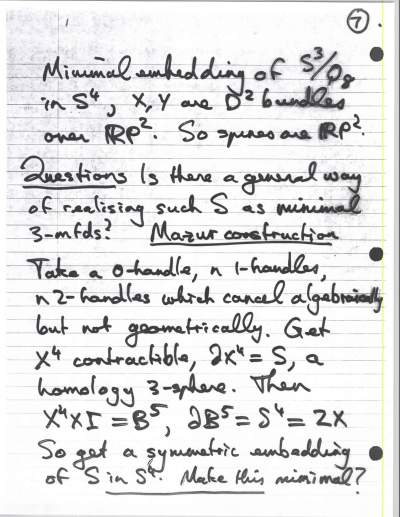 7.
Minimal embedding of S³/Q₈
in S⁴, X, Y are D² bundles
over RP². So spines are RP².
Questions Is there a general way
of realising such S as minimal
3-mfds? Mazur construction
Take a 0-handle, n 1-handles,
n 2-handles which cancel algebraically
but not geometrically. Get
X⁴ contractible, ∂X⁴ = S, a
homology 3-sphere. Then
X⁴×I = B⁵, ∂B⁵ = S⁴ = 2X
So get a symmetric embedding
of S in S⁴. Make this minimal?